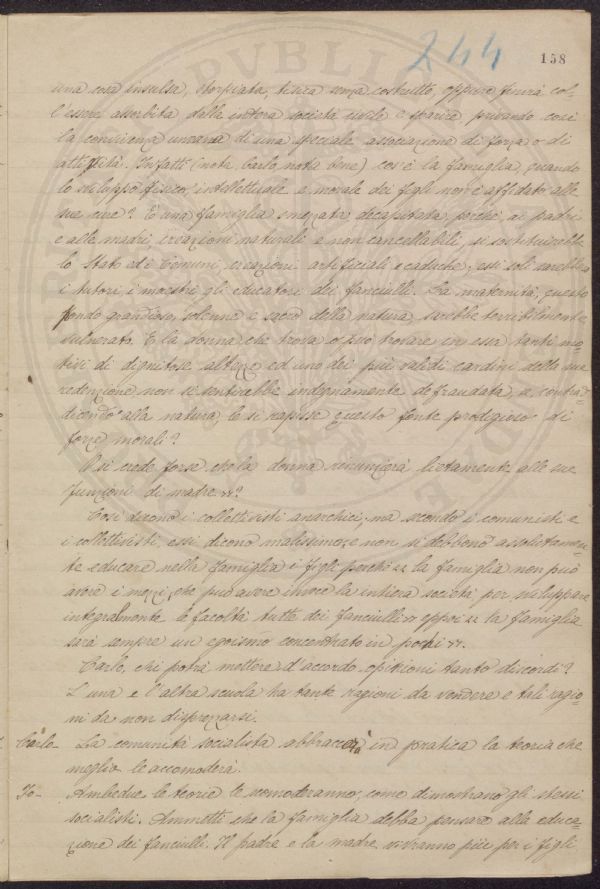 244 158
una cosa insulsa, storpiata, tisica senza costrutto, oppure finirà col-
l'essere assorbita dalla intera società civile e sparire privando così
la convivenza umana di una speciale associazione di forza o di
attività. Infatti (nota Carlo, nota bene) cos'è la famiglia, quando
lo sviluppo fisico, intellettuale e morale dei figli non è affidato alle
sue cure? È una famiglia smezzata decapitata, perchè, ai padri
e alle madri, creazioni naturali e non cancellabili, si sostituirebbe
lo Stato ed i Comuni, creazioni artificiali e caduche; essi soli sarebbero
i tutori, i maestri gli educatori dei fanciulli. La maternità, questo
pondo grandioso, solenne e sacro della natura, sarebbe terribilmente
vulnerato. E la donna che trova o può trovare in essa tanti mo-
tivi di dignitose altezze ed uno dei più validi cardini della sua
redenzione, non si sentirebbe indegnamente defraudata, se, contrad-
dicendo alla natura, le si rapisse questo fonte prodigioso di
forze morali?
O si crede forse che la donna rinunzierà lietamente alle sue
funzioni di madre »?
Così dicono i collettivisti anarchici, ma secondo i comunisti e
i collettivisti, essi dicono malissimo; e non si debbono assolutamen-
te educare nella famiglia i figli perchè « la famiglia non può
avere i mezzi, che può avere invece la intiera società per sviluppare
integralmente le facoltà tutte dei fanciulli » eppoi « la famiglia
sarà sempre un egoismo concentrato in pochi ».
Carlo, chi potrà mettere d'accordo opinioni tanto discordi?
L'una e l'altra scuola ha tante ragioni da vendere e tali ragio-
ni da non disprezzarsi.
Carlo - La comunità socialista abbraccerà in pratica la teoria che
meglio le accomoderà.
Io - Ambedue le teorie le scomoderanno, come dimostrano gli stessi
socialisti. Ammetti che la famiglia debba pensare alla educa-
zione dei fanciulli. Il padre e la madre vivranno più per i figli